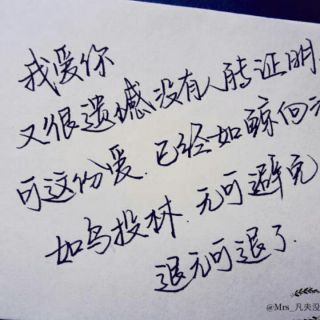 我爱你
又很遗憾没有人能证明
可这份爱.已经如鲸向
如鸟投林.无可避免
退无可退了.
@Mrs_凡夫没